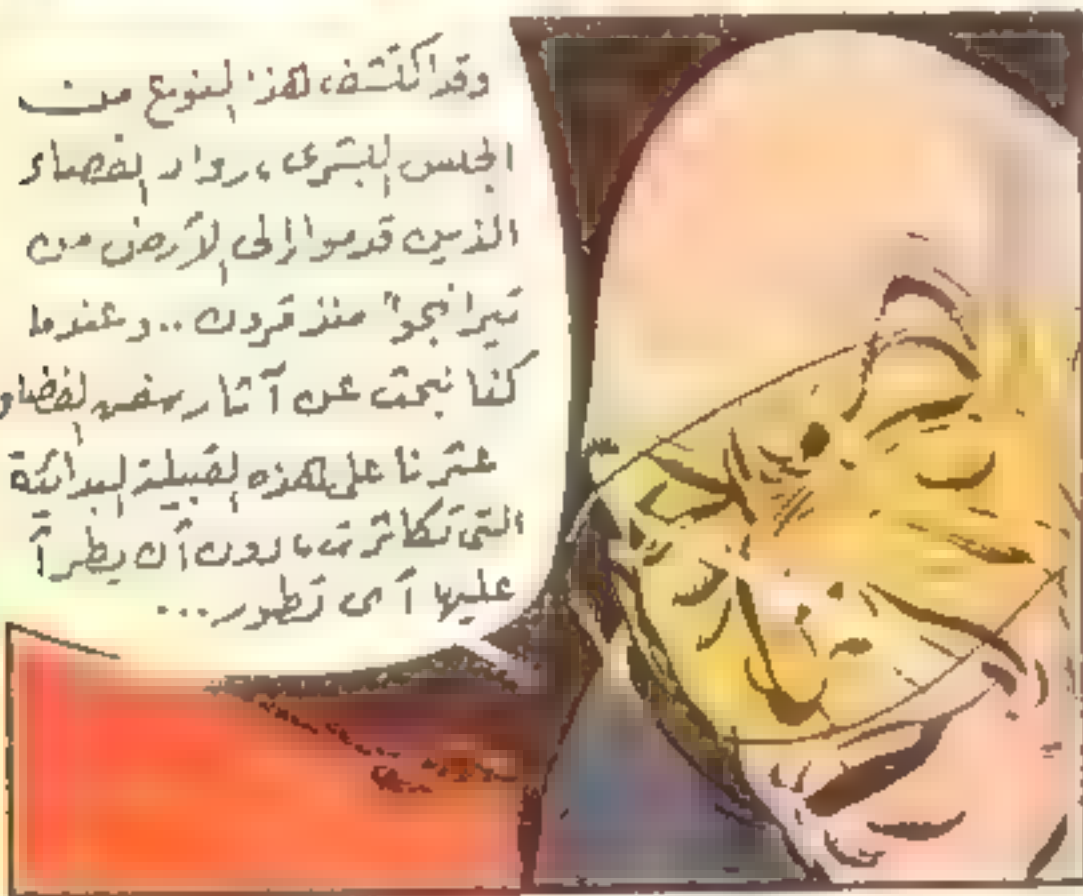 وقد اكتشف، هذا النوع من
الجنس البشرى، رواد الفضاء
الذين قدموا إلى الأرض من
تيرانجو" منذ قرون .. وعندما
كنا نبحث عن آثار سفن الفضاء
عثرنا على هذه القبيلة البدائية
التى تكاثرت، دون أن يطرأ
عليها أى تطور ...